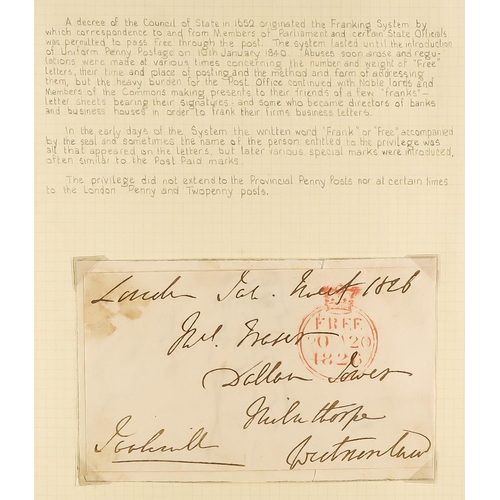 A decree of the Council of State in 1652 originated the Franking System by
which correspondence to and from Members of Parliament and certain State Officials
was permitted to pass free through the post. The system lasted until the introduction
of Uniform Penny Postage on 10th January 1840. Abuses soon arose and regu-
lations were made at various times concerning the number and weight of "Free"
letters, their time and place of posting and the method and form of addressing
them, but the heavy burden for the Post Office continued with Noble lords and
Members of the Commons making presents to their friends of a few "franks" –
letter sheets bearing their signatures – and some who became directors of banks
and business houses in order to frank their firms business letters.
In the early days of the System the written word "Frank" or "Free" accompanied
by the seal and sometimes the name of the person entitled to the privilege was
all that appeared on the letters, but later various special marks were introduced,
often similar to the Post Paid marks.
The privilege did not extend to the Provincial Penny Posts nor at certain times
to the London Penny and Twopenny posts.
London 1826
FREE
20 20
1826
Fraser
Dallam Tower
Milnthorpe
Westmorland